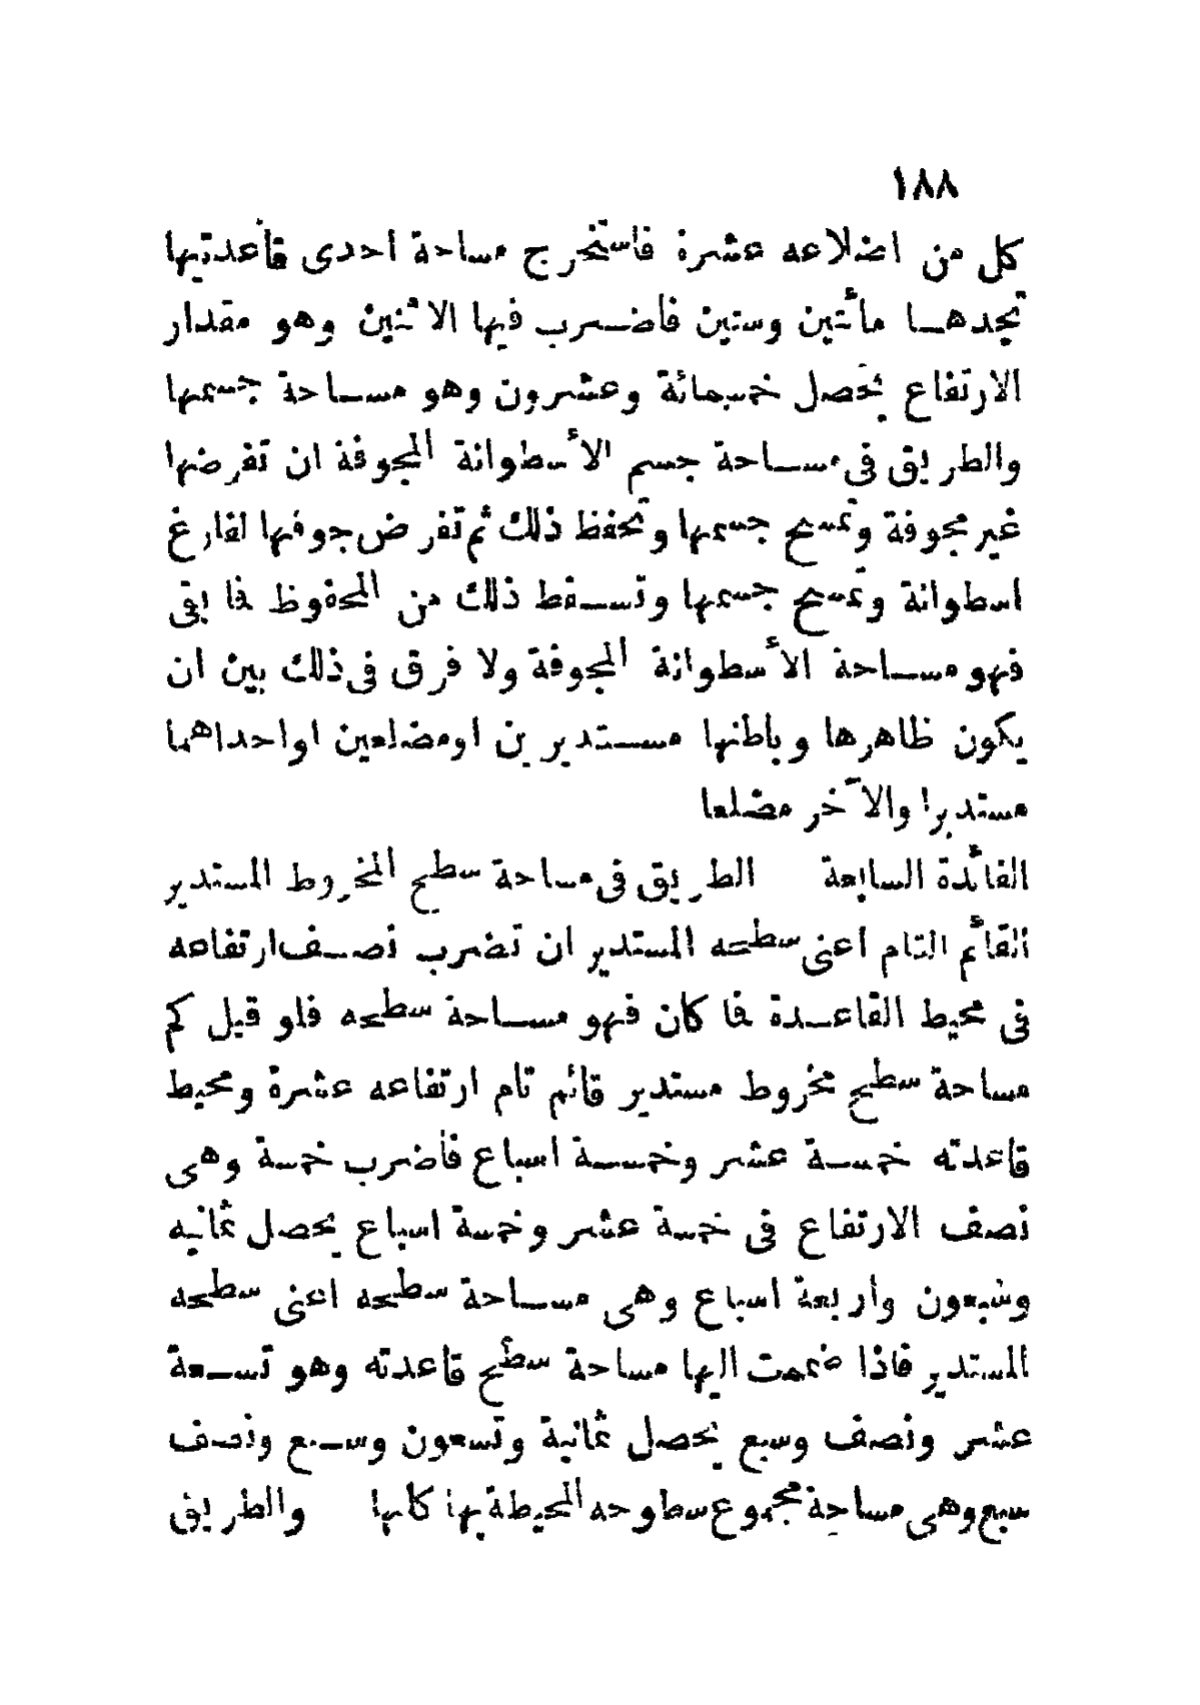 ١٨٨
كل من اضلاعه عشرة فاستخرج مساحة احدى قاعدتيها
تجدهـا مأتين وستين فاضرب فيها الاثنين وهو مقدار
الارتفاع يحصل خمسمائة وعشرون وهو مساحة جسمها
والطريق فى مساحة جسم الأسطوانة المجوفة ان تفرضها
غير مجوفة وتمسح جسمها وتحفظ ذلك ثم تفرض جوفها الفارغ
اسطوانة وتمسح جسمها وتسقط ذلك من المحفوظ فما بقى
فهو مساحة الأسطوانة المجوفة ولا فرق فى ذلك بين ان
يكون ظاهرها وباطنها مستديرين او مضلعين او احداهما
مستديرا والآخر مضلعا
الفائدة السابعة الطريق فى مساحة سطح المخروط المستدير
القائم التام اعنى سطحه المستدير ان تضرب نصف ارتفاعه
فى محيط القاعدة فما كان فهو مساحة سطحه فلو قيل كم
مساحة سطح مخروط مستدير قائم تام ارتفاعه عشرة ومحيط
قاعدته خمسة عشر وخمسة اسباع فاضرب خمسة وهى
نصف الارتفاع فى خمسة عشر وخمسة اسباع يحصل ثمانيه
وسبعون واربعة اسباع وهى مساحة سطحه اعنى سطحه
المستدير فاذا ضممت اليها مساحة سطح قاعدته وهو تسعة
عشر ونصف وسبع يحصل ثمانية وتسعون وسبع ونصف
سبع وهى مساحة مجموع سطوحه المحيطة بها كلها والطريق